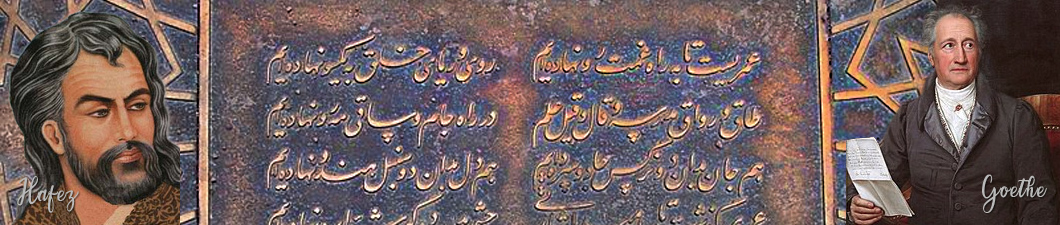 عمریست تا به راه غمت رو نهاده‌ایم روی و ریای خلق به یکسو نهاده‌ایم
طاق و رواق مدرسه و قال و قیل علم در راه جام و ساقی مه رو نهاده‌ایم
هم جان بدان دو نرگس جادو سپرده‌ایم هم دل بدان دو سنبل هندو نهاده‌ایم
Hafez
Goethe